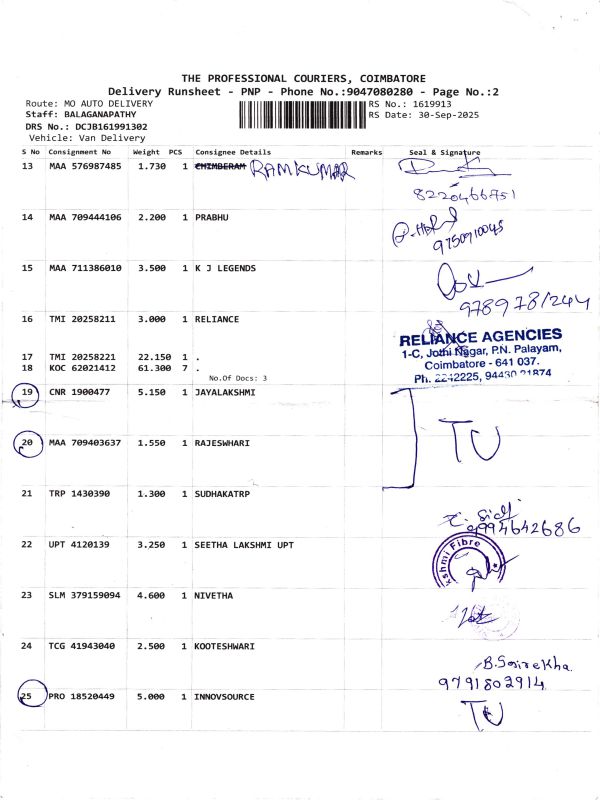 THE PROFESSIONAL COURIERS, COIMBATORE
Delivery Runsheet - PNP - Phone No.:9047080280 - Page No.:2
Route: MO AUTO DELIVERY
Staff: BALAGANAPATHY
DRS No.: DCJB161991302
Vehicle: Van Delivery
RS No.: 1619913
RS Date: 30-Sep-2025
S No Consignment No Weight PCS Consignee Details Remarks Seal & Signature
13 MAA 576987485 1.730 1 CHIMBERAM RAMKUMAR
8220466751
14 MAA 709444106 2.200 1 PRABHU
9750910045
15 MAA 711386010 3.500 1 K J LEGENDS
9789781244
16 TMI 20258211 3.000 1 RELIANCE
RELIANCE AGENCIES
1-C, Jothi Nagar, P.N. Palayam,
Coimbatore - 641 037.
Ph. 2242225, 94430 21874
17 TMI 20258221 22.150 1 .
18 KOC 62021412 61.300 7 .
No.Of Docs: 3
19 CNR 1900477 5.150 1 JAYALAKSHMI
20 MAA 709403637 1.550 1 RAJESWHARI
TU
21 TRP 1430390 1.300 1 SUDHAKATRP
9994642686
22 UPT 4120139 3.250 1 SEETHA LAKSHMI UPT
kshmi Fibre
23 SLM 379159094 4.600 1 NIVETHA
24 TCG 41943040 2.500 1 KOOTESHWARI
B.Sairekha.
9791802914
25 PRO 18520449 5.000 1 INNOVSOURCE
TU